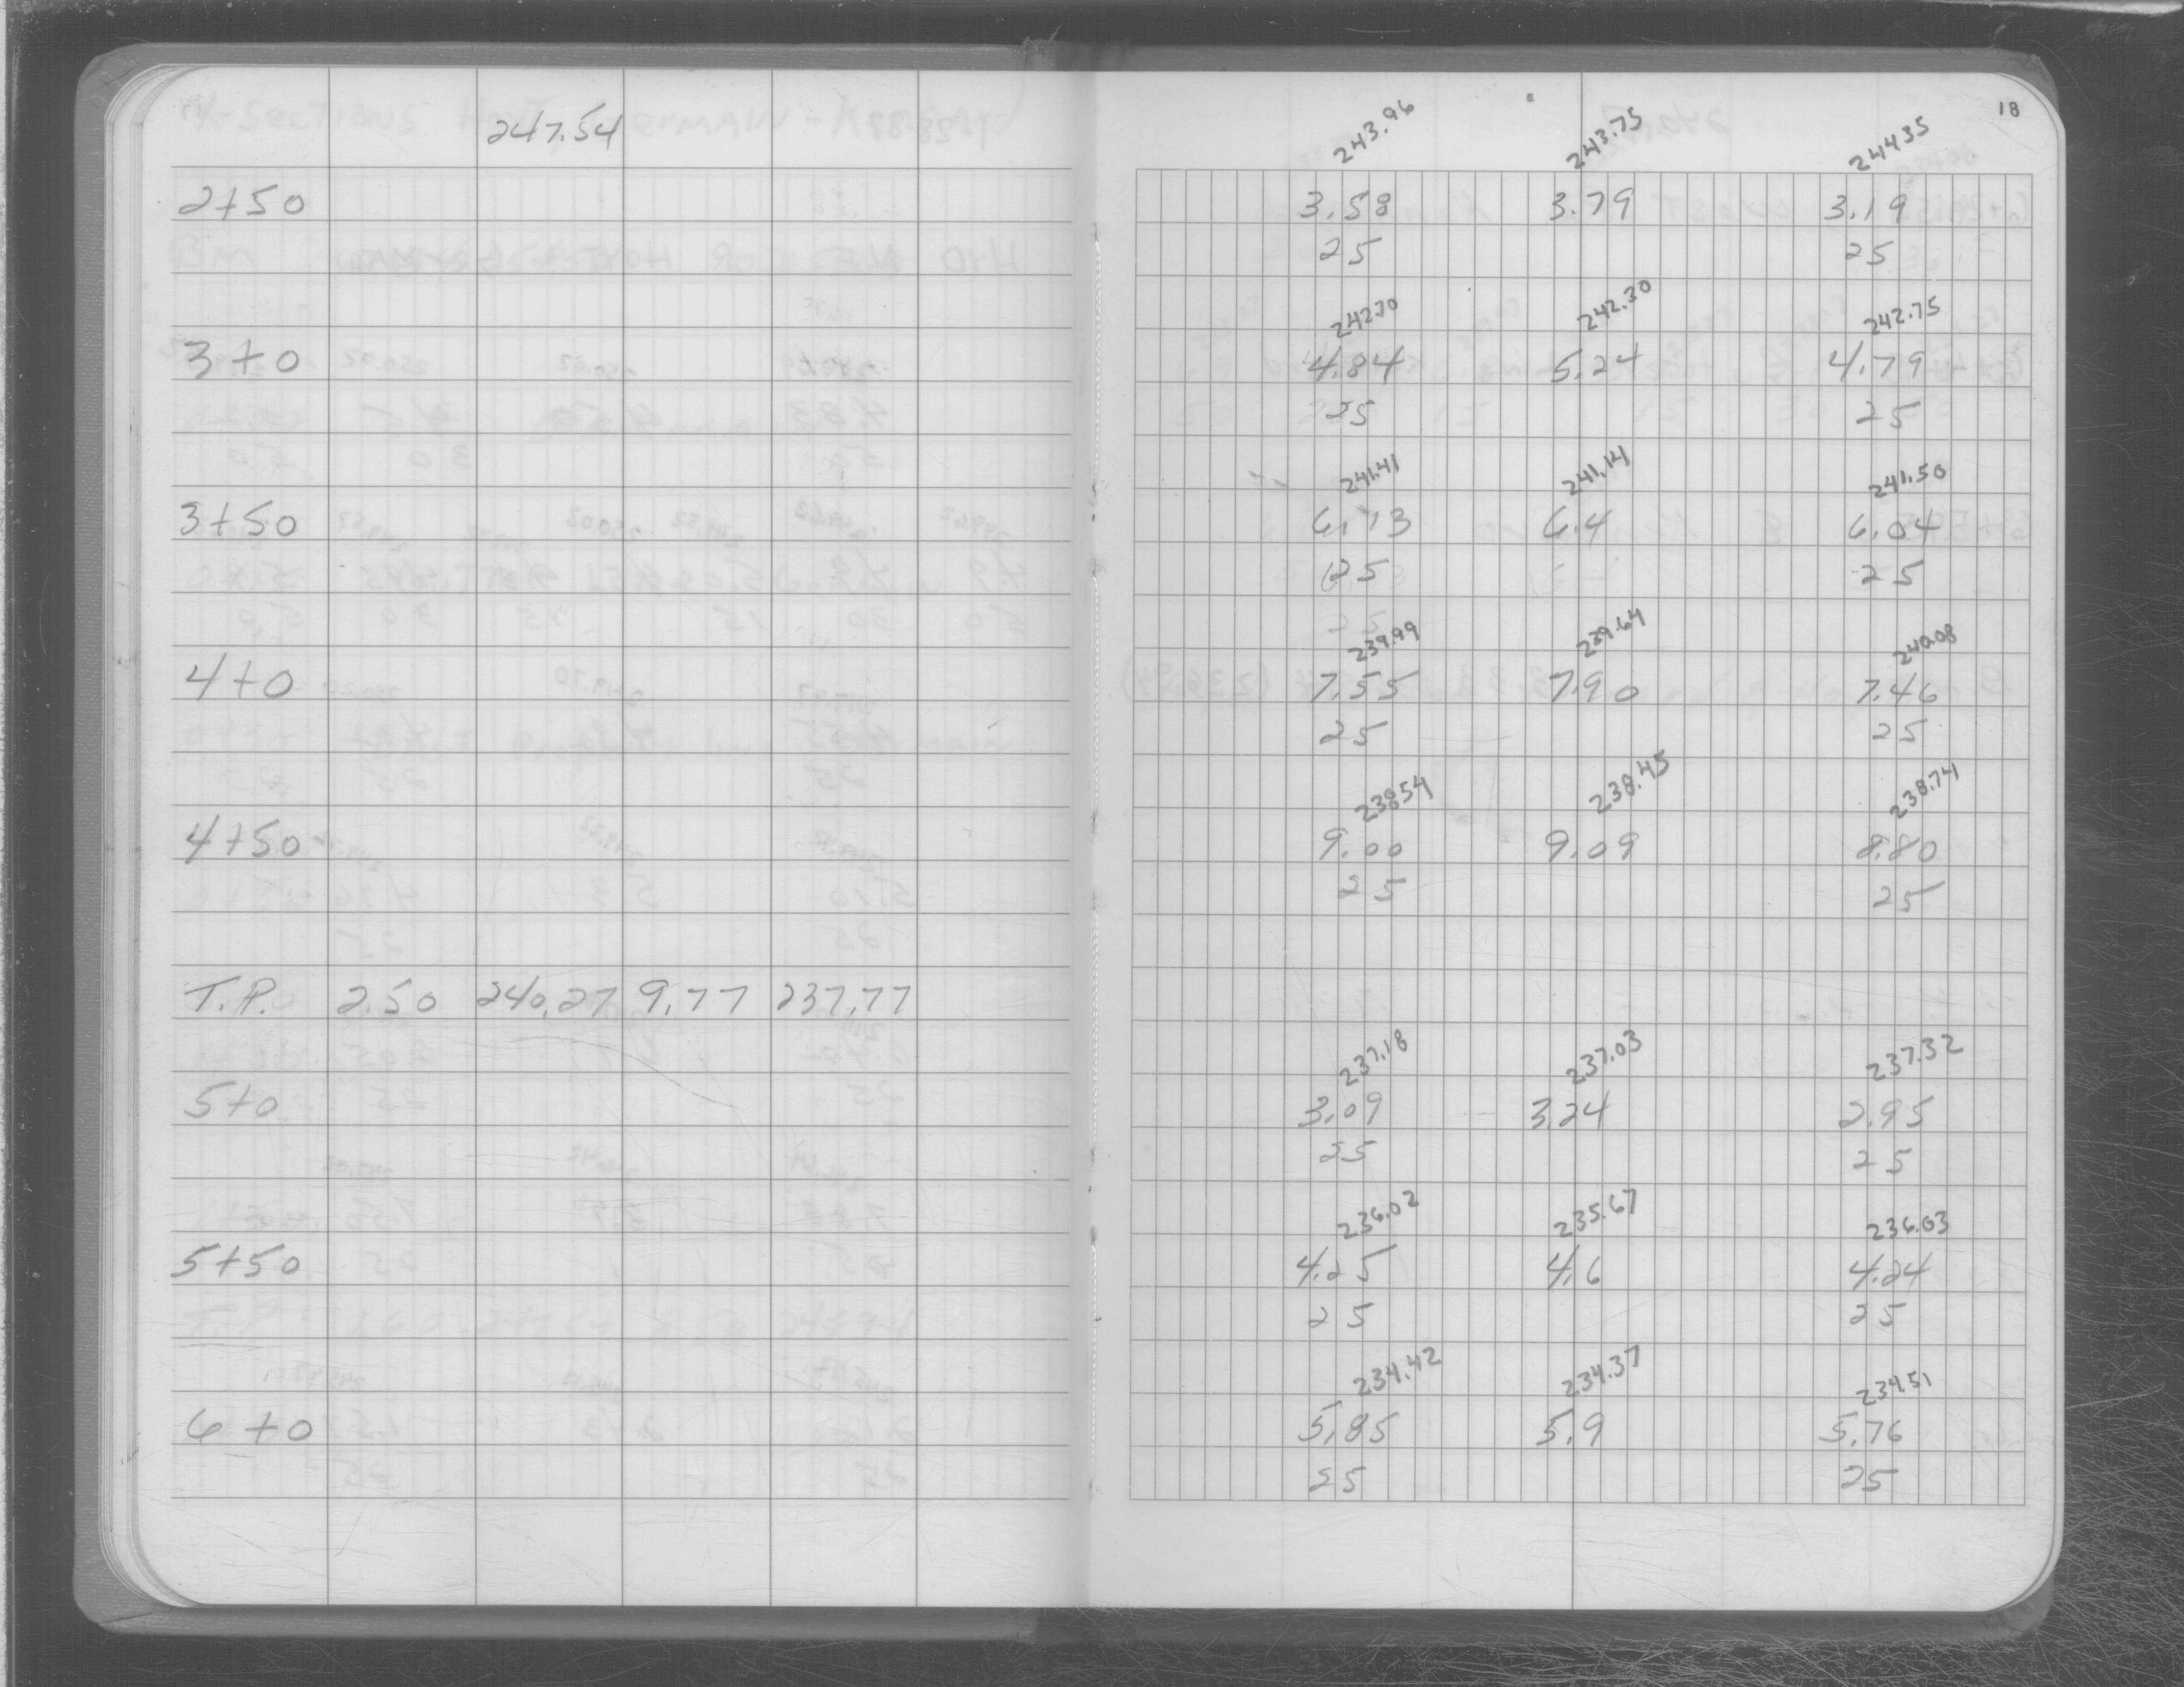 247.54
2+50
3+0
3+50
4+0
4+50
T.P. 2.50 240.27 9.77 237.77
5+0
5+50
6+0
18
243.96 243.75 244.35
3.58 3.79 3.19
25 25
242.70 242.30 242.75
4.84 5.24 4.79
25 25
241.41 241.14 241.50
6.13 6.4 6.04
25 25
239.99 239.64 240.08
7.55 7.90 7.46
25 25
238.54 238.45 238.74
9.00 9.09 8.80
25 25
237.18 237.03 237.32
3.09 3.24 2.95
25 25
236.02 235.67 236.03
4.25 4.6 4.24
25 25
234.42 234.37 234.51
5.85 5.9 5.76
25 25